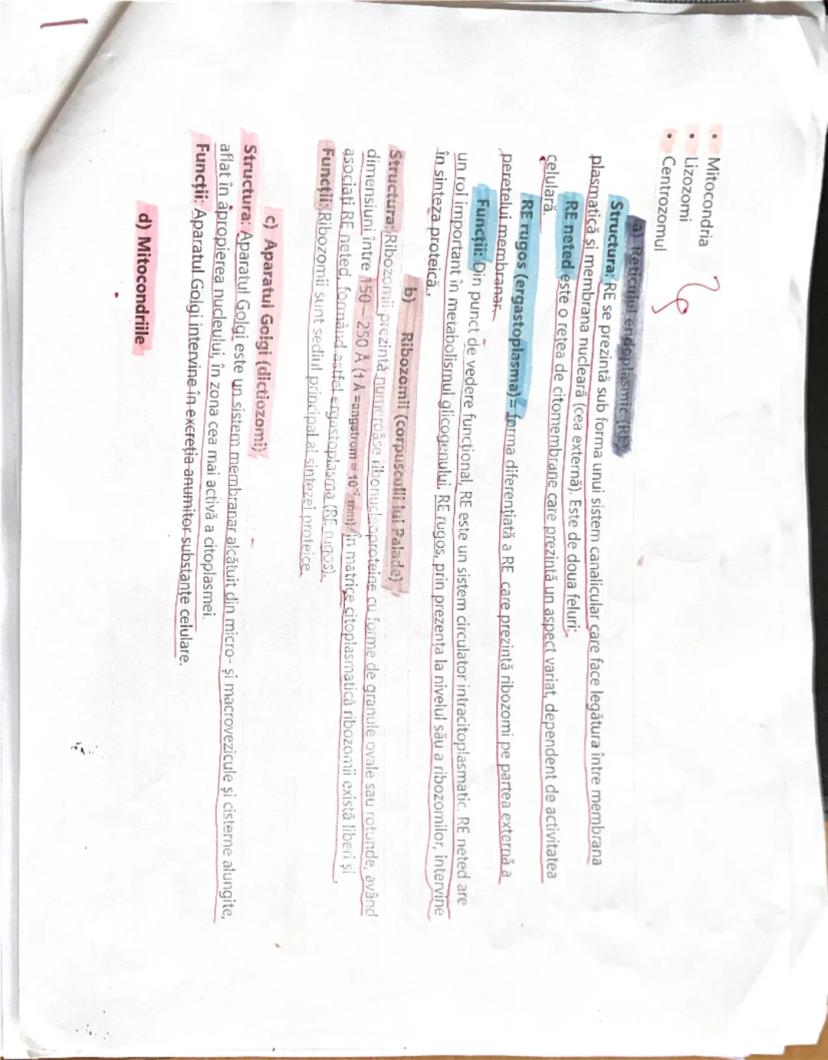 • Mitocondria
• Lizozomi
• Centrozomul
a) Reticulul endoplasmic (RE)
Structura: RE se prezintă sub forma unui sistem canalicular care face legătura între membrana
plasmatică și membrana nucleară (cea externă). Este de doua feluri:
RE neted este o rețea de citomembrane care prezintă un aspect variat, dependent de activitatea
celulară.
RE rugos (ergastoplasma)= forma diferențiată a RE care prezintă ribozomi pe partea externă a
peretelui membranar.
Funcții: Din punct de vedere funcțional, RE este un sistem circulator intracitoplasmatic. RE neted are
un rol important în metabolismul glicogenului. RE rugos, prin prezența la nivelul său a ribozomilor, intervine
în sinteza proteică.
b) Ribozomii (corpusculii lui Palade)
Structura: Ribozomii prezintă numeroase ribonucleoproteine cu forme de granule ovale sau rotunde, având
dimensiuni între 150 – 250 Å (1 Å =angstrom = 10⁻⁷ mm). În matrice citoplasmatică ribozomii există liberi și
asociați RE neted, formând astfel ergastoplasma (RE rugos).
Funcții: Ribozomii sunt sediul principal al sintezei proteice.
c) Aparatul Golgi (dictiozomi)
Structura: Aparatul Golgi este un sistem membranar alcătuit din micro- și macrovezicule și cisterne alungite,
aflat în apropierea nucleului, în zona cea mai activă a citoplasmei.
Funcții: Aparatul Golgi intervine în excreția anumitor substanțe celulare.
d) Mitocondriile